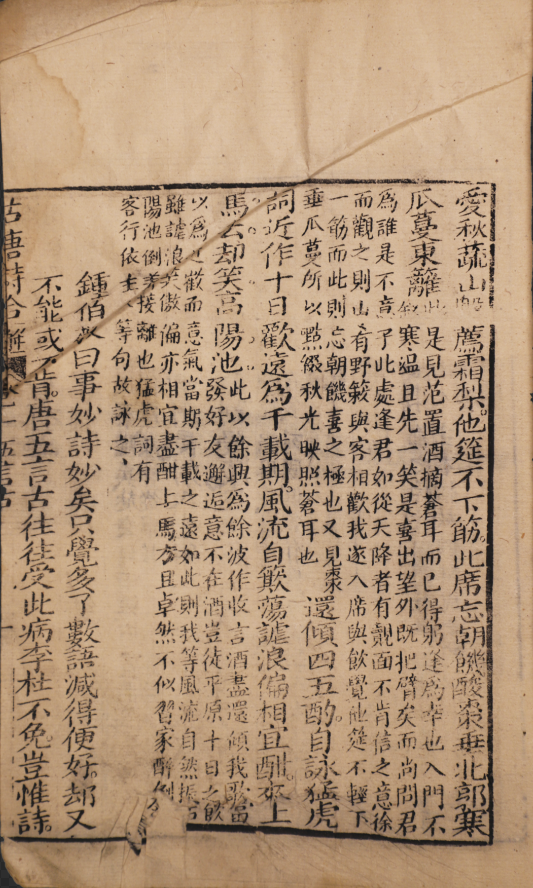 愛秋蔬山盤薦霜梨。他筵不下筯。此席忘朝饑酸棗垂北郭寒
瓜蔓東籬此
是見范置酒摘蒼耳而已得躬逢為幸也入門不
敘寒溫且先一笑是喜出望外既把臂矣而尚問君
為誰是不意于此處逢君如從天降者有覿面不肯信之意徐
而觀之則山肴野簌與客相歡我遂入席與飲覺他筵不輕下
一筯而此則忘朝饑喜之極也又見棗
垂瓜蔓所以點綴秋光映照蒼耳也
還傾四五酌。自詠猛虎
詞近作十日歡遠為千載期。風流自簸蕩謔浪偏相宜酣來上
馬去却笑高陽池
此以餘興為餘波作收言酒盡還傾我歌當
發好友邂逅意不在酒豈徒平原十日之飲
以為近歡而意氣當期千載之遠如此則我等風流自然振古
雖謔浪笑傲偏亦相宜盡酣上馬方且卓然不似習家醉倒
陽池倒著接離也猛虎詞有
客行依主等句故詠之
鍾伯敬曰事妙詩妙矣只覺多了數語減得便好却又
不能或不肯。唐五言古往往受此病李杜不免豈惟詩。
古唐詩合解 五言古